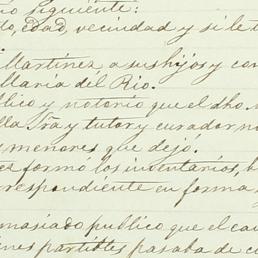 no siguiente:
do, edad, vecindad y si le t
Martinez a sus hijos y con
Maria del Rio.
blico y notorio que el dho.
lla Sra y tutor y curador n
s menores que dejó.
es formó los inventarios, b
rrespondiente en forma y
masiado publico que el cau
ines partibles pasaba de c